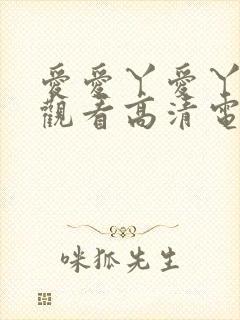 愛愛丫愛丫
觀看高清電
咪狐先生